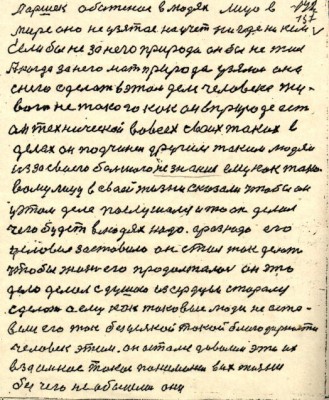 Паршек обоженое в людях лицо в
мире оно не узятое на учет нигде ни кем
Если бы не за него природа он бы не жил
А когда за него мать природа узялася она
с него сделать в этом деле человека жи-
вого не такого как он в природе есть
он технической во всех своих таких в
делах он подчинен другим таким людям
из за своего большого незнания ему как тако
вому лицу в своей жизни сказали чтобы он
у этом деле послушался и то он делал
чего будет в людях надо. а раз надо его
условия заставили он стал так делать
чтобы жизнь его продолжалась он это
дело делал с душою и сердцем старался
сделать а ему как таковые люди не оста-
вили его так без всякой такой благодарности
человек этим. он остался доволен это их
взаимное такое понимание в их жизни
без чего не обошлись они